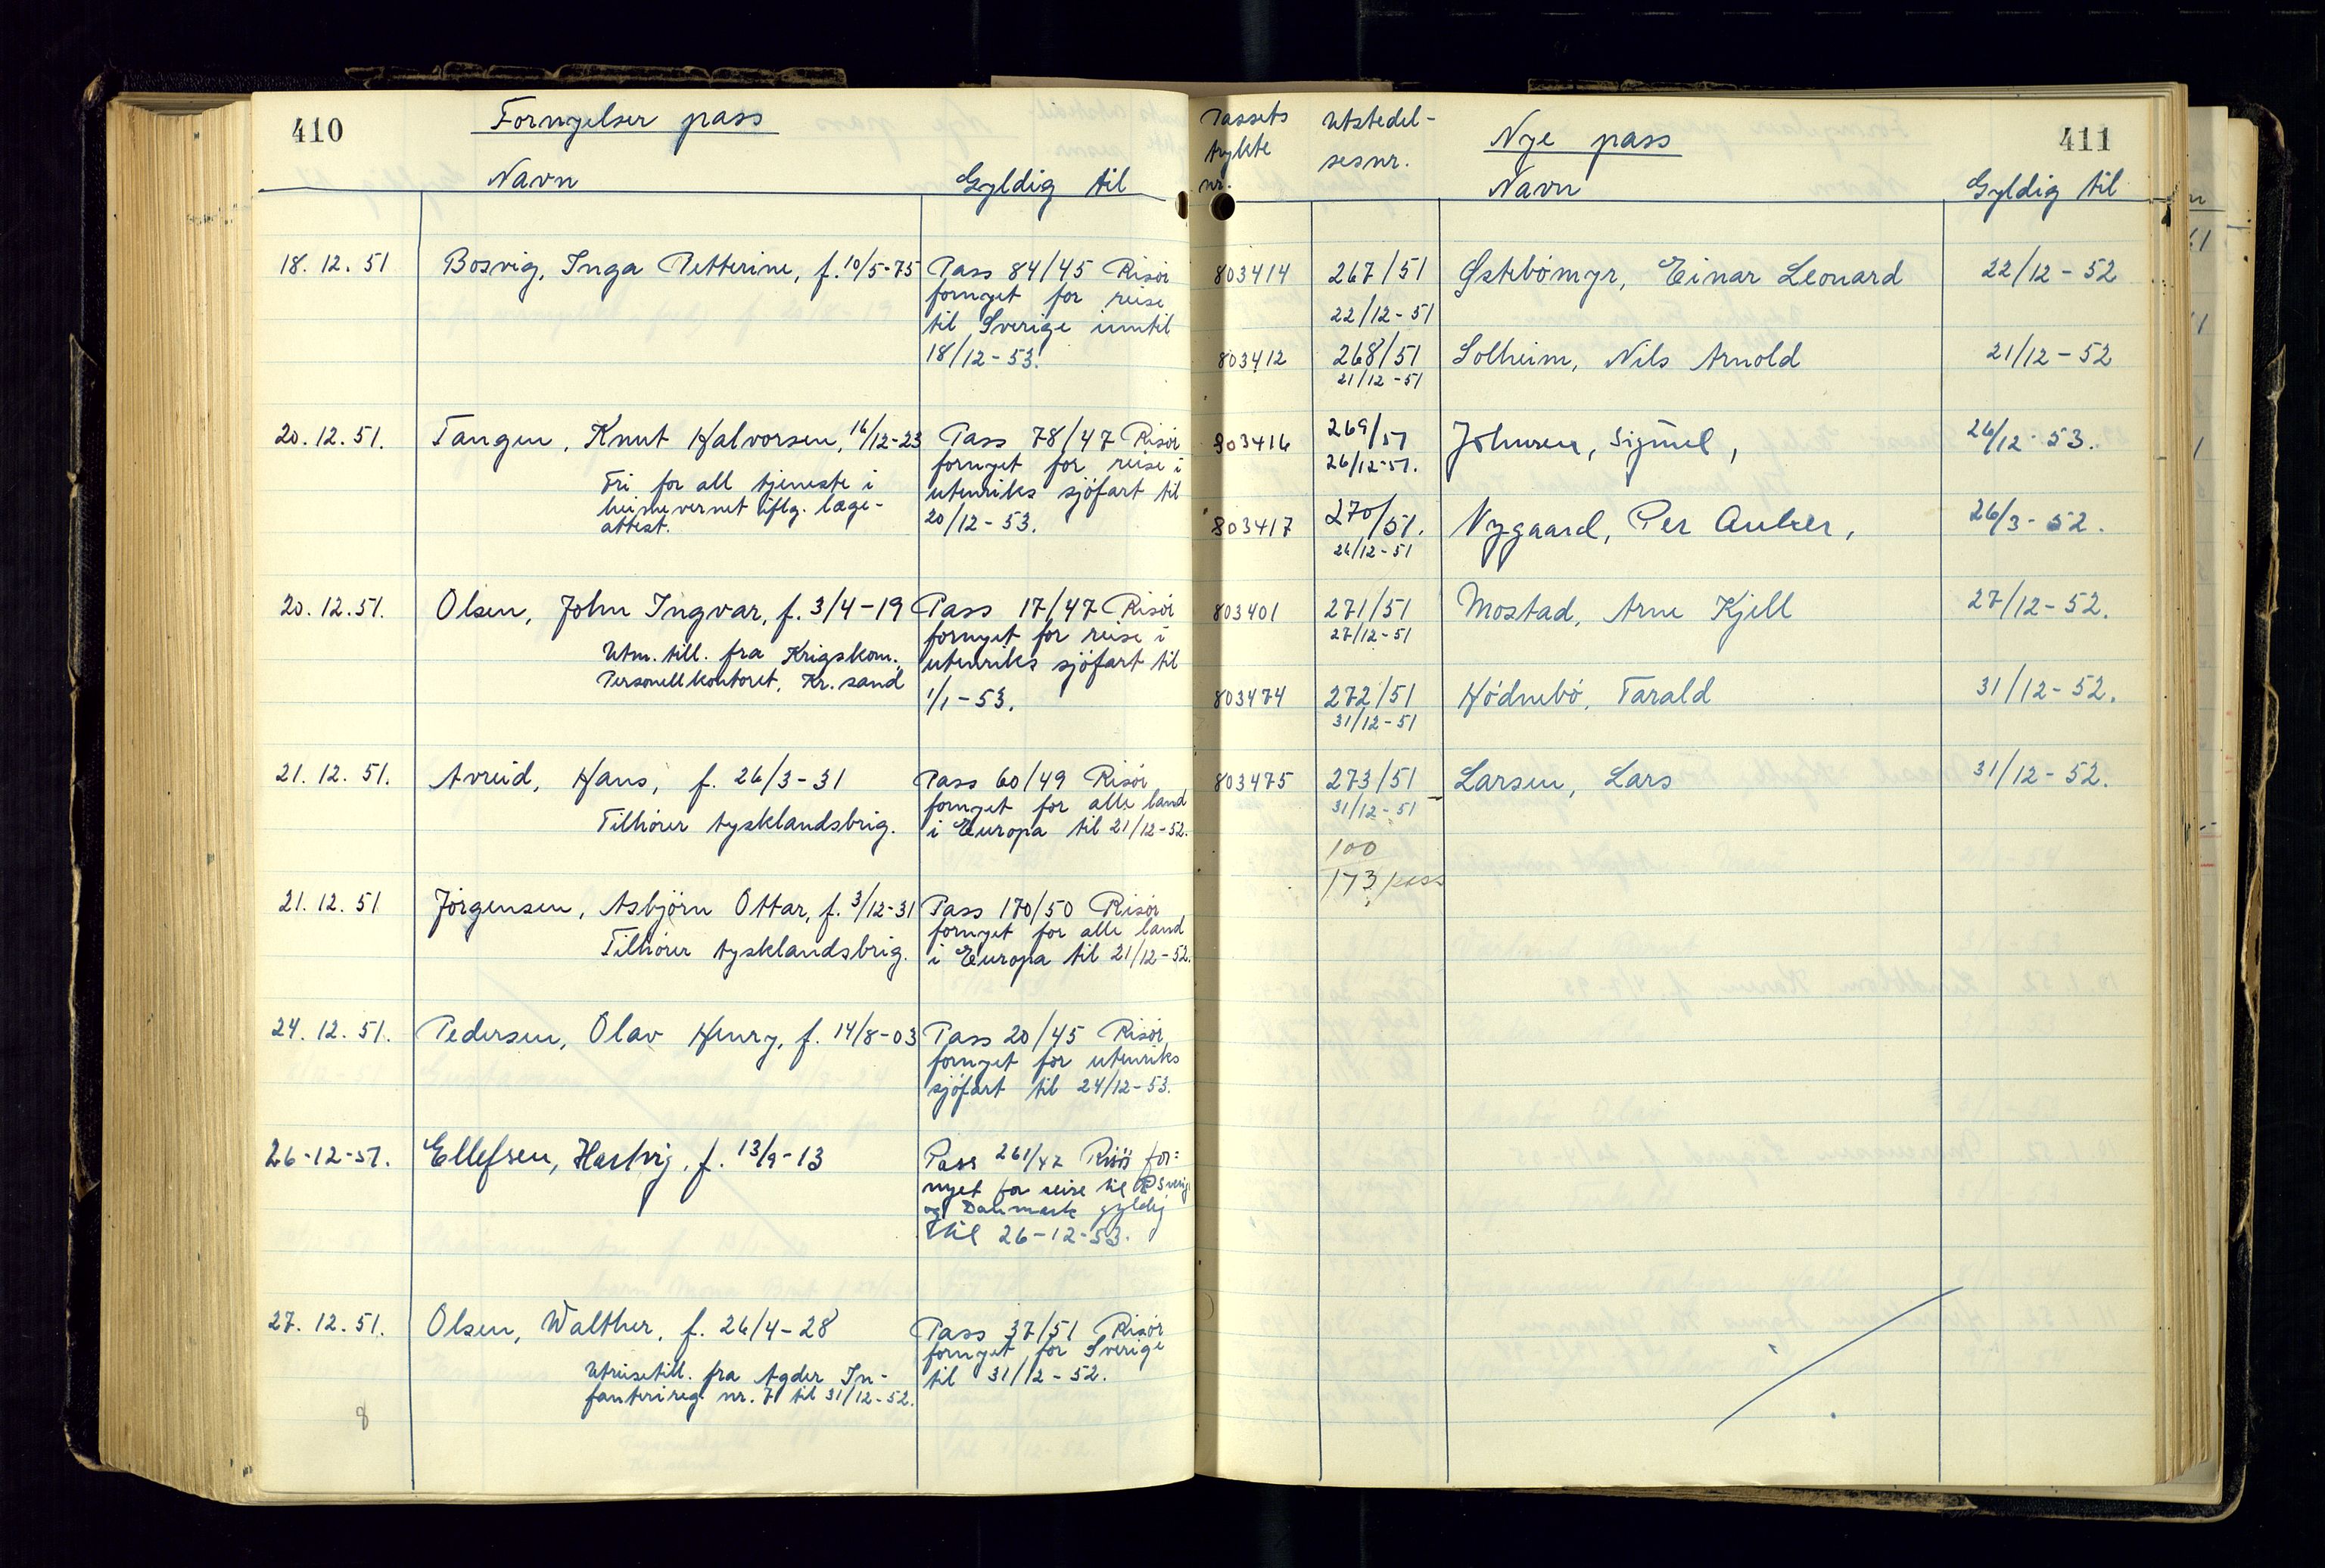 410
Fornyelser pass
Navn
Gyldig til
18. 12. 51 Bosvig, Inga Petterine, f. 10/5-75 Pass 84/45 Risör
fornyet for reise
til Sverige inntil
18/12-53.
20. 12. 51. Tangen, Knut Halvorsen, 16/12-23 Pass 78/47 Risör
fornyet for reise i
Fri for all tjeneste i
utenriks sjöfart til
heimevernet iflg. læge-
20/12-53.
attest.
20. 12. 51. Olsen, John Ingvar, f. 3/4-19 Pass 17/47 Risör
fornyet for reise i
Utm. till. fra Krigskom.
utenriks sjöfart til
Personellkontoret, Kr.sand
1/1-53.
21. 12. 51. Avreid, Hans, f. 26/3-31 Pass 60/49 Risör
fornyet for alle land
Tilhörer tysklandsbrig. i Europa til 21/12-52.
21. 12. 51 Jörgensen, Asbjörn Ottar, f. 3/12-31 Pass 170/50 Risör
fornyet for alle land
Tilhörer tysklandsbrig. i Europa til 21/12-52.
24. 12. 51. Pedersen, Olav Henry, f. 14/8-03 Pass 20/45 Risör
fornyet for utenriks
sjöfart til 24/12-53.
26-12-51. Ellefsen, Hartvig, f. 13/9-13 Pass 261/47 Risör for=
nyet for reise til Sverig
og Danmark gyldig
til 26-12-53.
27. 12. 51. Olsen, Walther, f. 26/4-28 Pass 37/51 Risör
fornyet for Sverige
Utreisetill. fra Agder In-
til 31/12-52.
fanterireg. nr. 7 til 31/12-52.
8
411
Passets
trykte
nr.
Utstedel-
sesnr.
Nye pass
Navn
Gyldig til
803414 267/51 Östebömyr, Einar Leonard 22/12-52
22/12-51
803412 268/51 Solheim, Nils Arnold 21/12-52
21/12-51
803416 269/51 Johnsen, Sigmel, 26/12-53.
26/12-51.
803417 270/51. Nygaard, Per Anker, 26/3-52.
26/12-51
803401 271/51 Mostad, Arne Kjell 27/12-52.
27/12-51
803474 272/51 Hödnebö, Tarald 31/12-52.
31/12-51
803475 273/51 Larsen, Lars 31/12-52.
31/12-51
100
173 pass